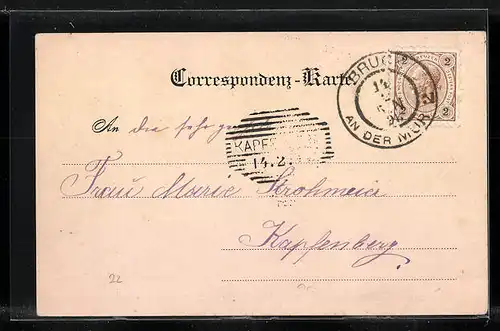 Correspondenz-Karte
2
2
BRUCK
AN DER MUR
14
2
KAPFENBERG
14.2
An die sehr
Frau Marie Strohmeier
Kapfenberg
22